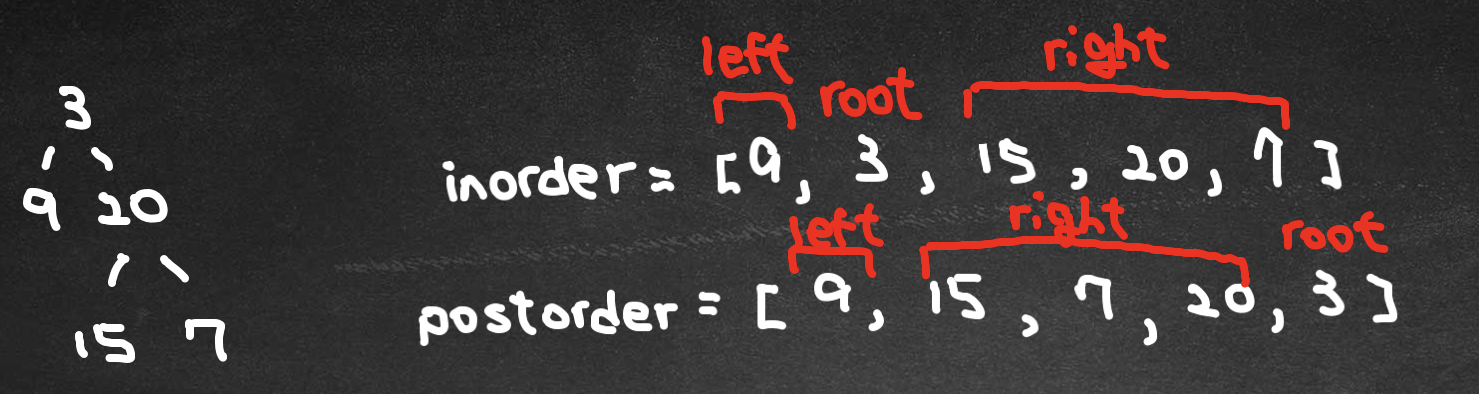 3
9 20
15 7
left root right
inorder = [9, 3, 15, 20, 7]
left right root
postorder = [9, 15, 7, 20, 3]